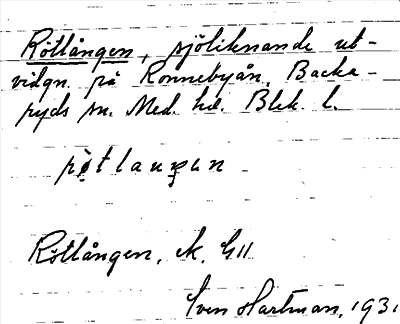 Rötlången, sjöliknande ut-
vidgn. på Ronnebyån. Backa-
ryds sn. Med. hd. Blek. l.
Rötlången, K, G11
Sven Hartman, 1931